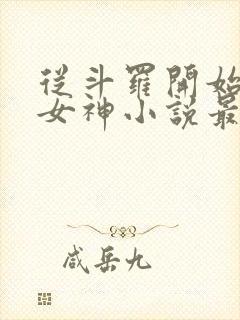 從斗羅開始
女神小說最
咸岳九